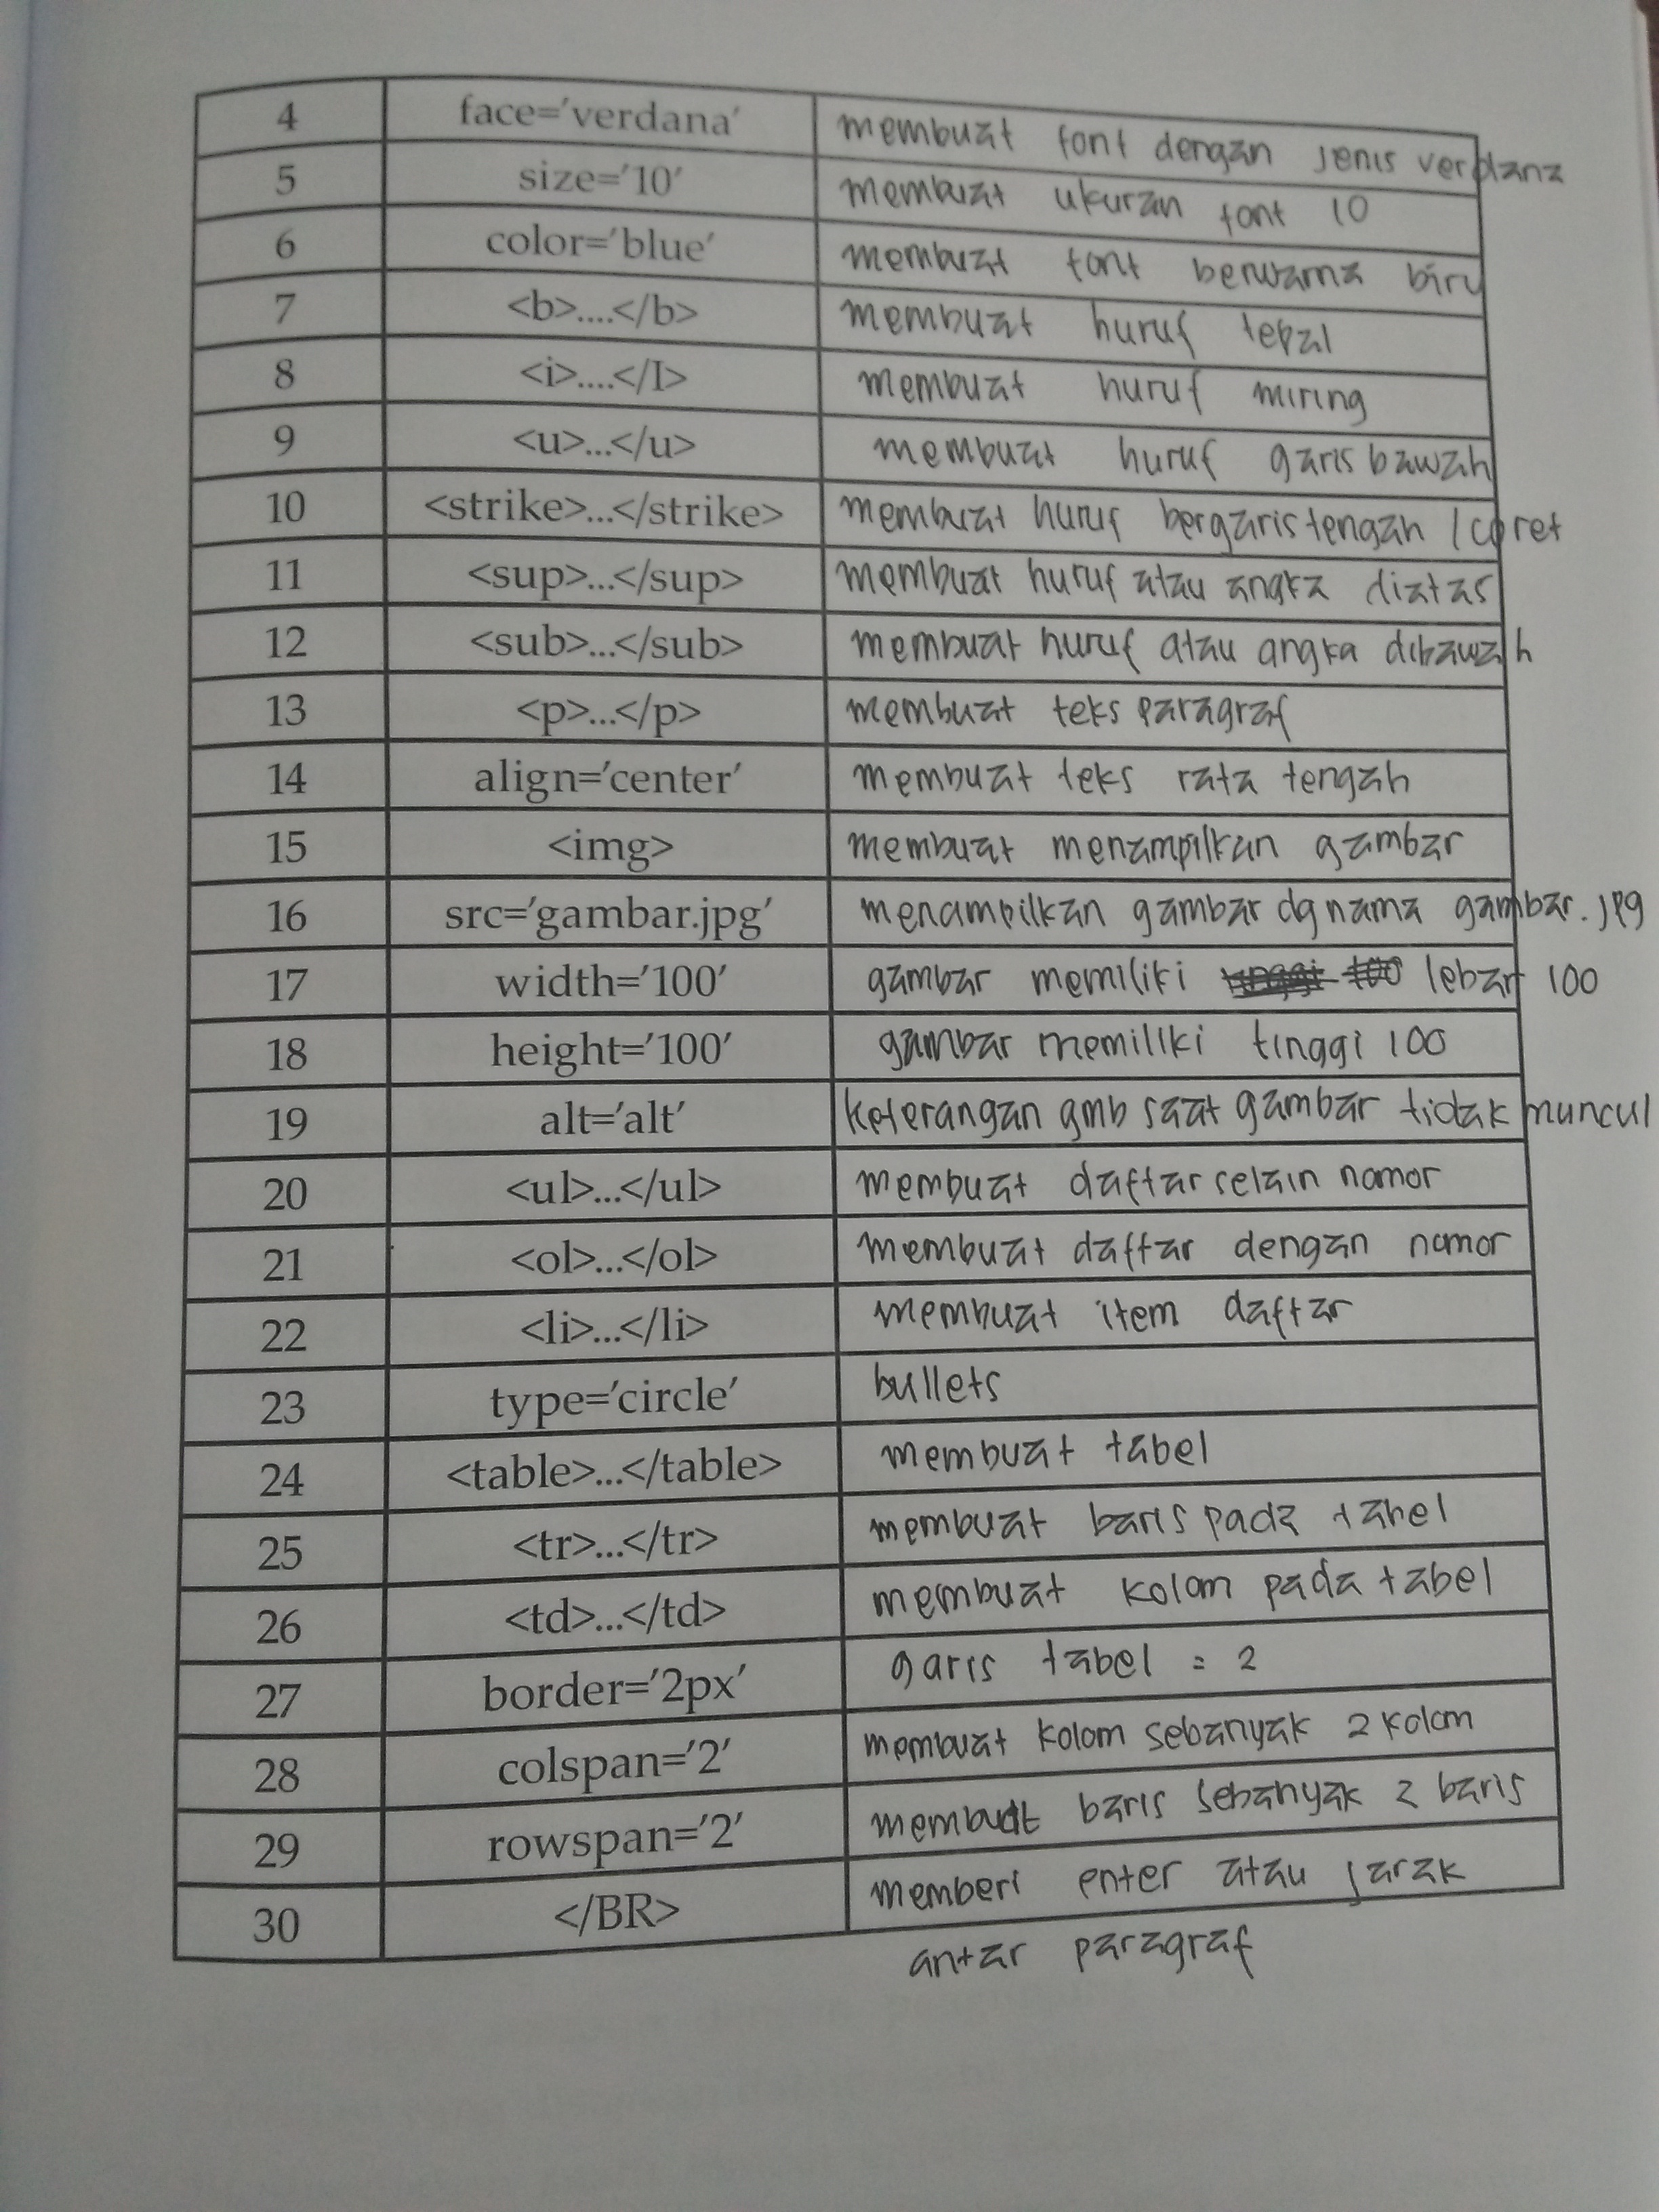 4 face='verdana' membuat font dengan jenis verdana
5 size='10' membuat ukuran font 10
6 color='blue' membuat font berwarna biru
7 <b>....</b> membuat huruf tebal
8 <i>....</I> membuat huruf miring
9 <u>...</u> membuat huruf garis bawah
10 <strike>...</strike> membuat huruf bergaris tengah / coret
11 <sup>...</sup> membuat huruf atau angka diatas
12 <sub>...</sub> membuat huruf atau angka dibawah
13 <p>...</p> membuat teks paragraf
14 align='center' membuat teks rata tengah
15 <img> membuat menampilkan gambar
16 src='gambar.jpg' menampilkan gambar dg nama gambar.jpg
17 width='100' gambar memiliki lebar 100
18 height='100' gambar memiliki tinggi 100
19 alt='alt' keterangan gmb saat gambar tidak muncul
20 <ul>...</ul> membuat daftar selain nomor
21 <ol>...</ol> membuat daftar dengan nomor
22 <li>...</li> membuat item daftar
23 type='circle' bullets
24 <table>...</table> membuat tabel
25 <tr>...</tr> membuat baris pada tabel
26 <td>...</td> membuat kolom pada tabel
27 border='2px' garis tabel = 2
28 colspan='2' membuat kolom sebanyak 2 kolom
29 rowspan='2' membuat baris sebanyak 2 baris
30 </BR> memberi enter atau jarak
antar paragraf